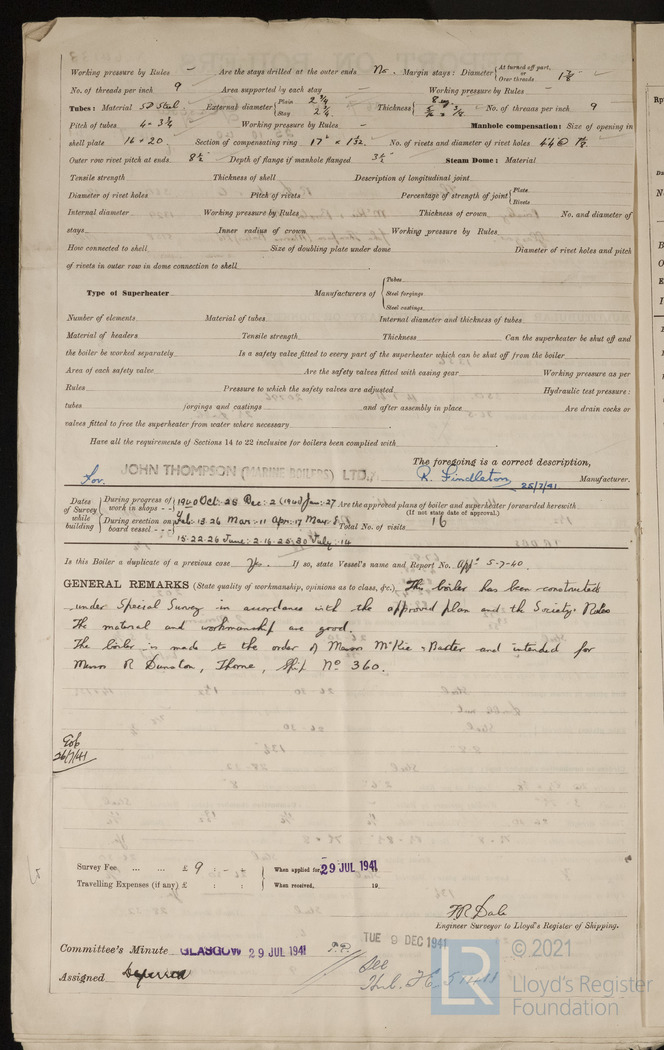 Working pressure by Rules – Are the stays drilled at the outer ends No. Margin stays: Diameter { At turned off part, or Over threads 1 7/8
No. of threads per inch 9 Area supported by each stay – Working pressure by Rules –
Tubes: Material S D Steel External diameter { Plain 2 3/4 Stay 2 3/4 Thickness { 8 wg No. of threads per inch 9
Pitch of tubes 4 × 3 3/4 Working pressure by Rules – Manhole compensation: Size of opening in
shell plate 16 × 20 Section of compensating ring No. of rivets and diameter of rivet holes 44 @
Outer row rivet pitch at ends 8 1/2 Depth of flange if manhole flanged 3 1/2 Steam Dome: Material
Tensile strength Thickness of shell Description of longitudinal joint
Diameter of rivet holes Pitch of rivets Percentage of strength of joint { Plate Rivets
Internal diameter Working pressure by Rules Thickness of crown No. and diameter of
stays Inner radius of crown Working pressure by Rules
How connected to shell Size of doubling plate under dome Diameter of rivet holes and pitch
of rivets in outer row in dome connection to shell
Type of Superheater Manufacturers of { Tubes Steel forgings Steel castings
Number of elements Material of tubes Internal diameter and thickness of tubes
Material of headers Tensile strength Thickness Can the superheater be shut off and
the boiler be worked separately Is a safety valve fitted to every part of the superheater which can be shut off from the boiler
Area of each safety valve Are the safety valves fitted with easing gear Working pressure as per
Rules Pressure to which the safety valves are adjusted Hydraulic test pressure:
tubes forgings and castings and after assembly in place Are drain cocks or
valves fitted to free the superheater from water where necessary
Have all the requirements of Sections 14 to 22 inclusive for boilers been complied with
The foregoing is a correct description,
For. JOHN THOMPSON (MARINE BOILERS) LTD., R. Findleton Manufacturer.
25/7/41
Dates of Survey while building { During progress of work in shops - - } 1940 Oct: 28 Dec: 2 (1941) Jan: 27 Are the approved plans of boiler and superheater forwarded herewith
(If not state date of approval.)
{ During erection on board vessel - - - } Feb: 13.26 Mar: 11 Apr: 17 May: 5 Total No. of visits 16
15.22.26 June: 2.16.25.30 July: 14
Is this Boiler a duplicate of a previous case Yes. If so, state Vessel's name and Report No. App. 5-7-40
GENERAL REMARKS (State quality of workmanship, opinions as to class, &c.) The boiler has been constructed
under Special Survey in accordance with the approved plan and the Society's Rules
The material and workmanship are good.
The boiler is made to the order of Messrs McKie & Baxter and intended for
Messrs R Dunston, Thorne, Ship No 360.
26/7/41
Survey Fee ... ... £ 9 : - : When applied for, 29 JUL 1941
Travelling Expenses (if any) £ : : When received, 19
F R Dale
Engineer Surveyor to Lloyd's Register of Shipping.
Committee's Minute GLASGOW 29 JUL 1941
TUE 9 DEC 1941
Assigned Deferred
See
LR
© 2021
Lloyd's Register
Foundation